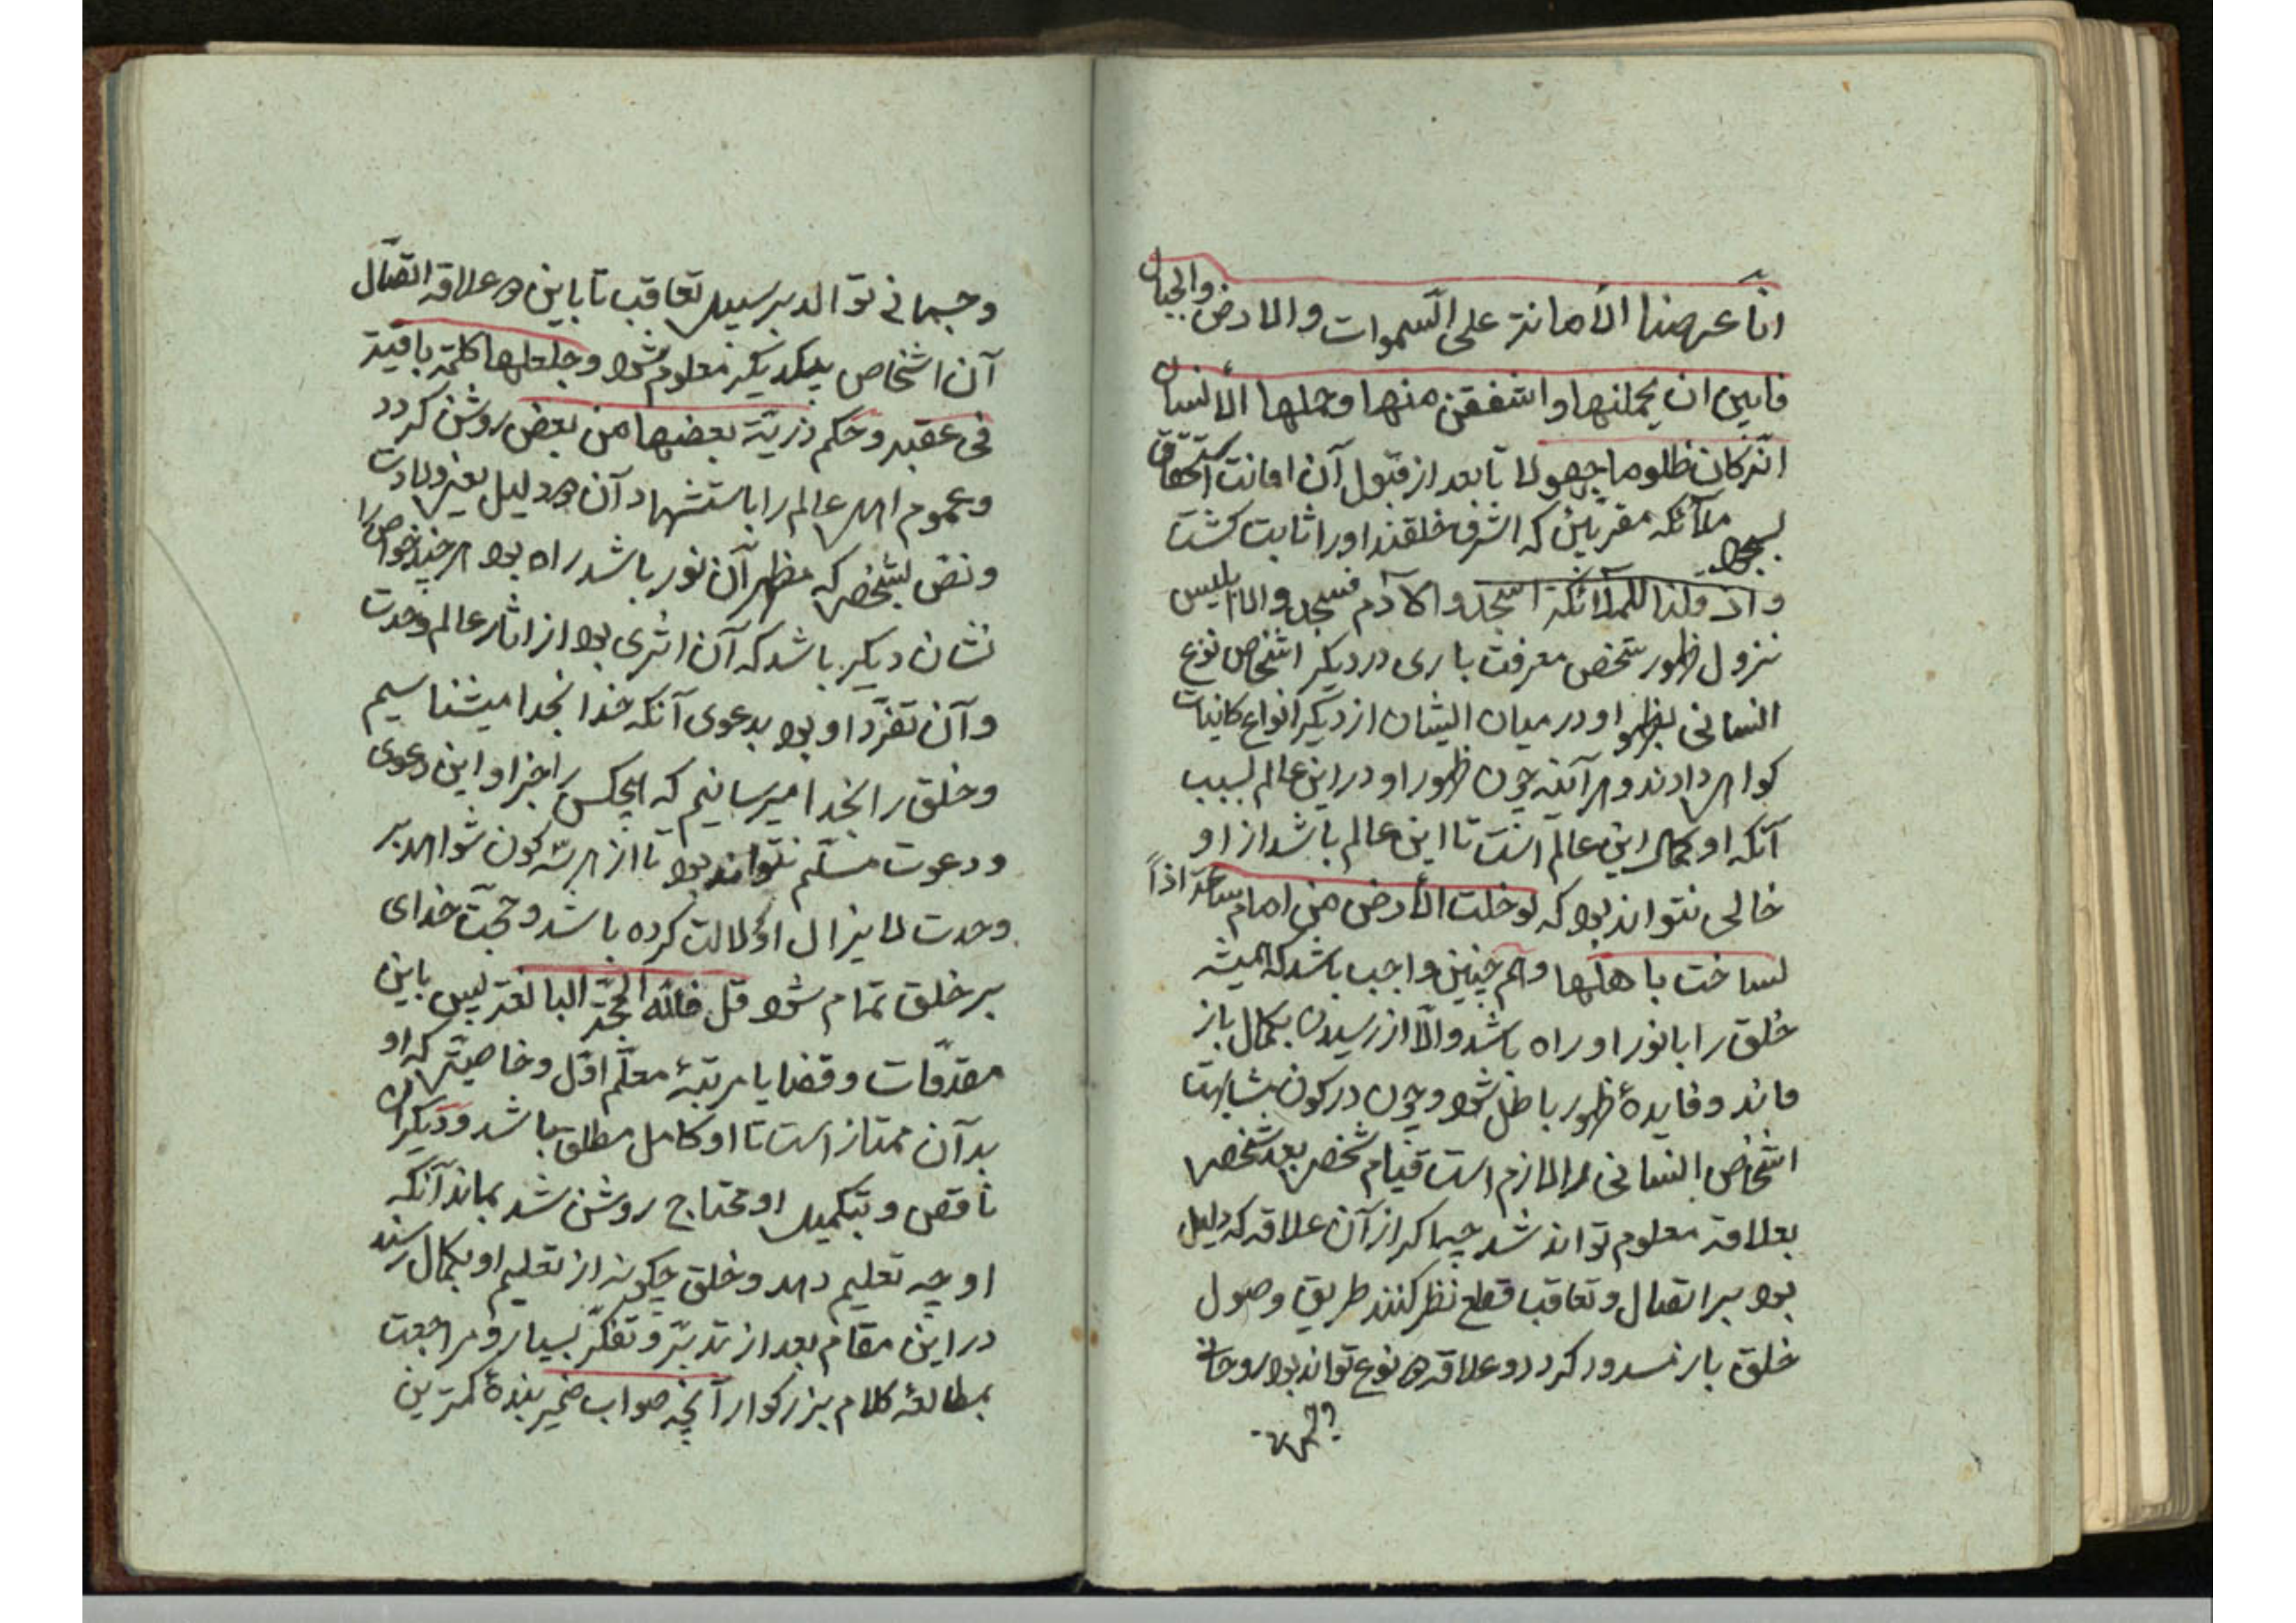 انّا عرضنا الأمانة على السّموات والارض والجبال
فابين ان يحملنها واشفقن منها وحملها الأنسان
انّه كان ظلوما جهولا تا بعد از قبول آن امانت استحقاق
بسجود ملآئكه مقربّين كه اشرف خلقند اورا ثابت كشت
واذ قلنا للملآئكة اسجدوا لآدم فسجدوا الا ابليس
نزول ظهور شخص معرفت بارى در ديكر اشخاص نوع
انسانى بظهور او در ميان ايشان از ديكر انواع كاينات
كواهى دادند و هر آينه چون ظهور او در اين عالم بسبب
آنكه او كمال اين عالم است تا اين عالم باشد از او
خالى نتواند بود كه لو خلت الأرض من امام ساعة اذاً
لساخت باهلها و هم چنين واجب باشد كه هميشه
خلق را با نور او راه باشد والّا از رسيدن بكمال باز
ماند و فايدهٔ ظهور باطل شود و چون در كون مشابهت
اشخاص انسانى را لازم است قيام شخصى بعد شخصى
بعلاقه معلوم تواند شد چه اكر از آن علاقه كه دليل
بود بر اتصال و تعاقب قطع نظر كنند طريق وصول
خلق بار مسدود كردد و علاقه دو نوع تواند بود روحانى
وجسمانى توالد بر سبيل تعاقب تا باين دو علاقه اتصال
آن اشخاص بيكديكر معلوم شود وجعلها كلمة باقية
فى عقبه و حكم ذرّيّة بعضها من بعض روشن كردد
وعموم اهل عالم را باستشهاد آن دو دليل يعنى ولادت
ونص بشخصى كه مظهر آن نور باشد راه بود هر چند خواص را
نشان ديكر باشد كه آن اثرى بود از اثار عالم وحدت
وآن تفرّد او بود بدعوى آنكه خدا بخدا ميشناسيم
وخلق را بخدا ميرسانيم كه هيچكس را جز او اين دعوى
ودعوت مسلّم نتواند بود تا از هر سه كون شواهد بر
وحدت لايزال او دلالت كرده باشد و حجّت خداى
بر خلق تمام شود قل فللّه الحجّة البالغة پس باين
مقدّمات و قضايا مرتبهٔ معلّم اوّل و خاصيّتى كه او
بدآن ممتاز است تا او كامل مطلق باشد و ديكران
ناقص و بتكميل او محتاج روشن شد بماند آنكه
او چه تعليم دهد و خلق چكونه از تعليم او بكمال رسند
در اين مقام بعد از تدبّر و تفكّر بسيار و مراجعت
بمطالعهٔ كلام بزركوار آنچه صواب ضمير بندهٔ كمترين